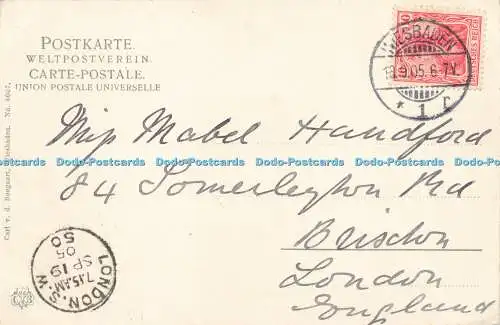 POSTKARTE.
WELTPOSTVEREIN.
CARTE-POSTALE.
UNION POSTALE UNIVERSELLE
WIESBADEN
18.9.05.6-7N.
* 1 c
10
DEUTSCHES REICH
Miss Mabel Handford
Dodo-Postcards Dodo-Postcards Dodo-Postcards Dodo-Postcards Dodo-Postcards
84 Somerleyton Rd
Brixton
London
England
LONDON. S.W.
7.15.AM
SP 19
05
50
Carl v. d. Boogaart, Wiesbaden. No.